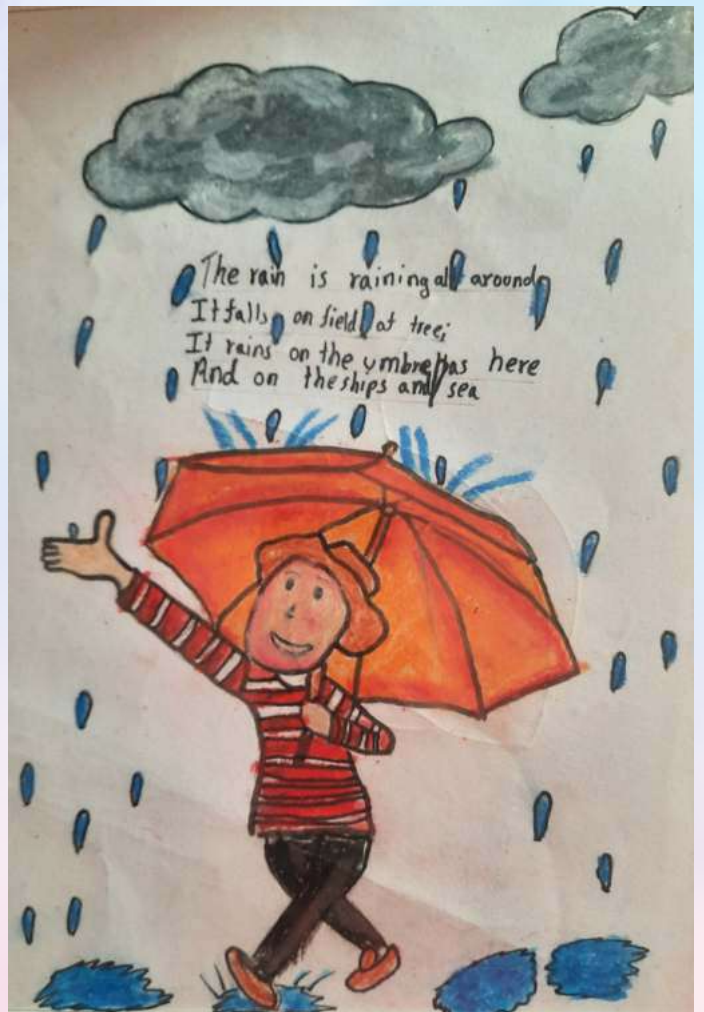 The rain is raining all around,
It falls on field at tree;
It rains on the umbrellas here
And on the ships and sea